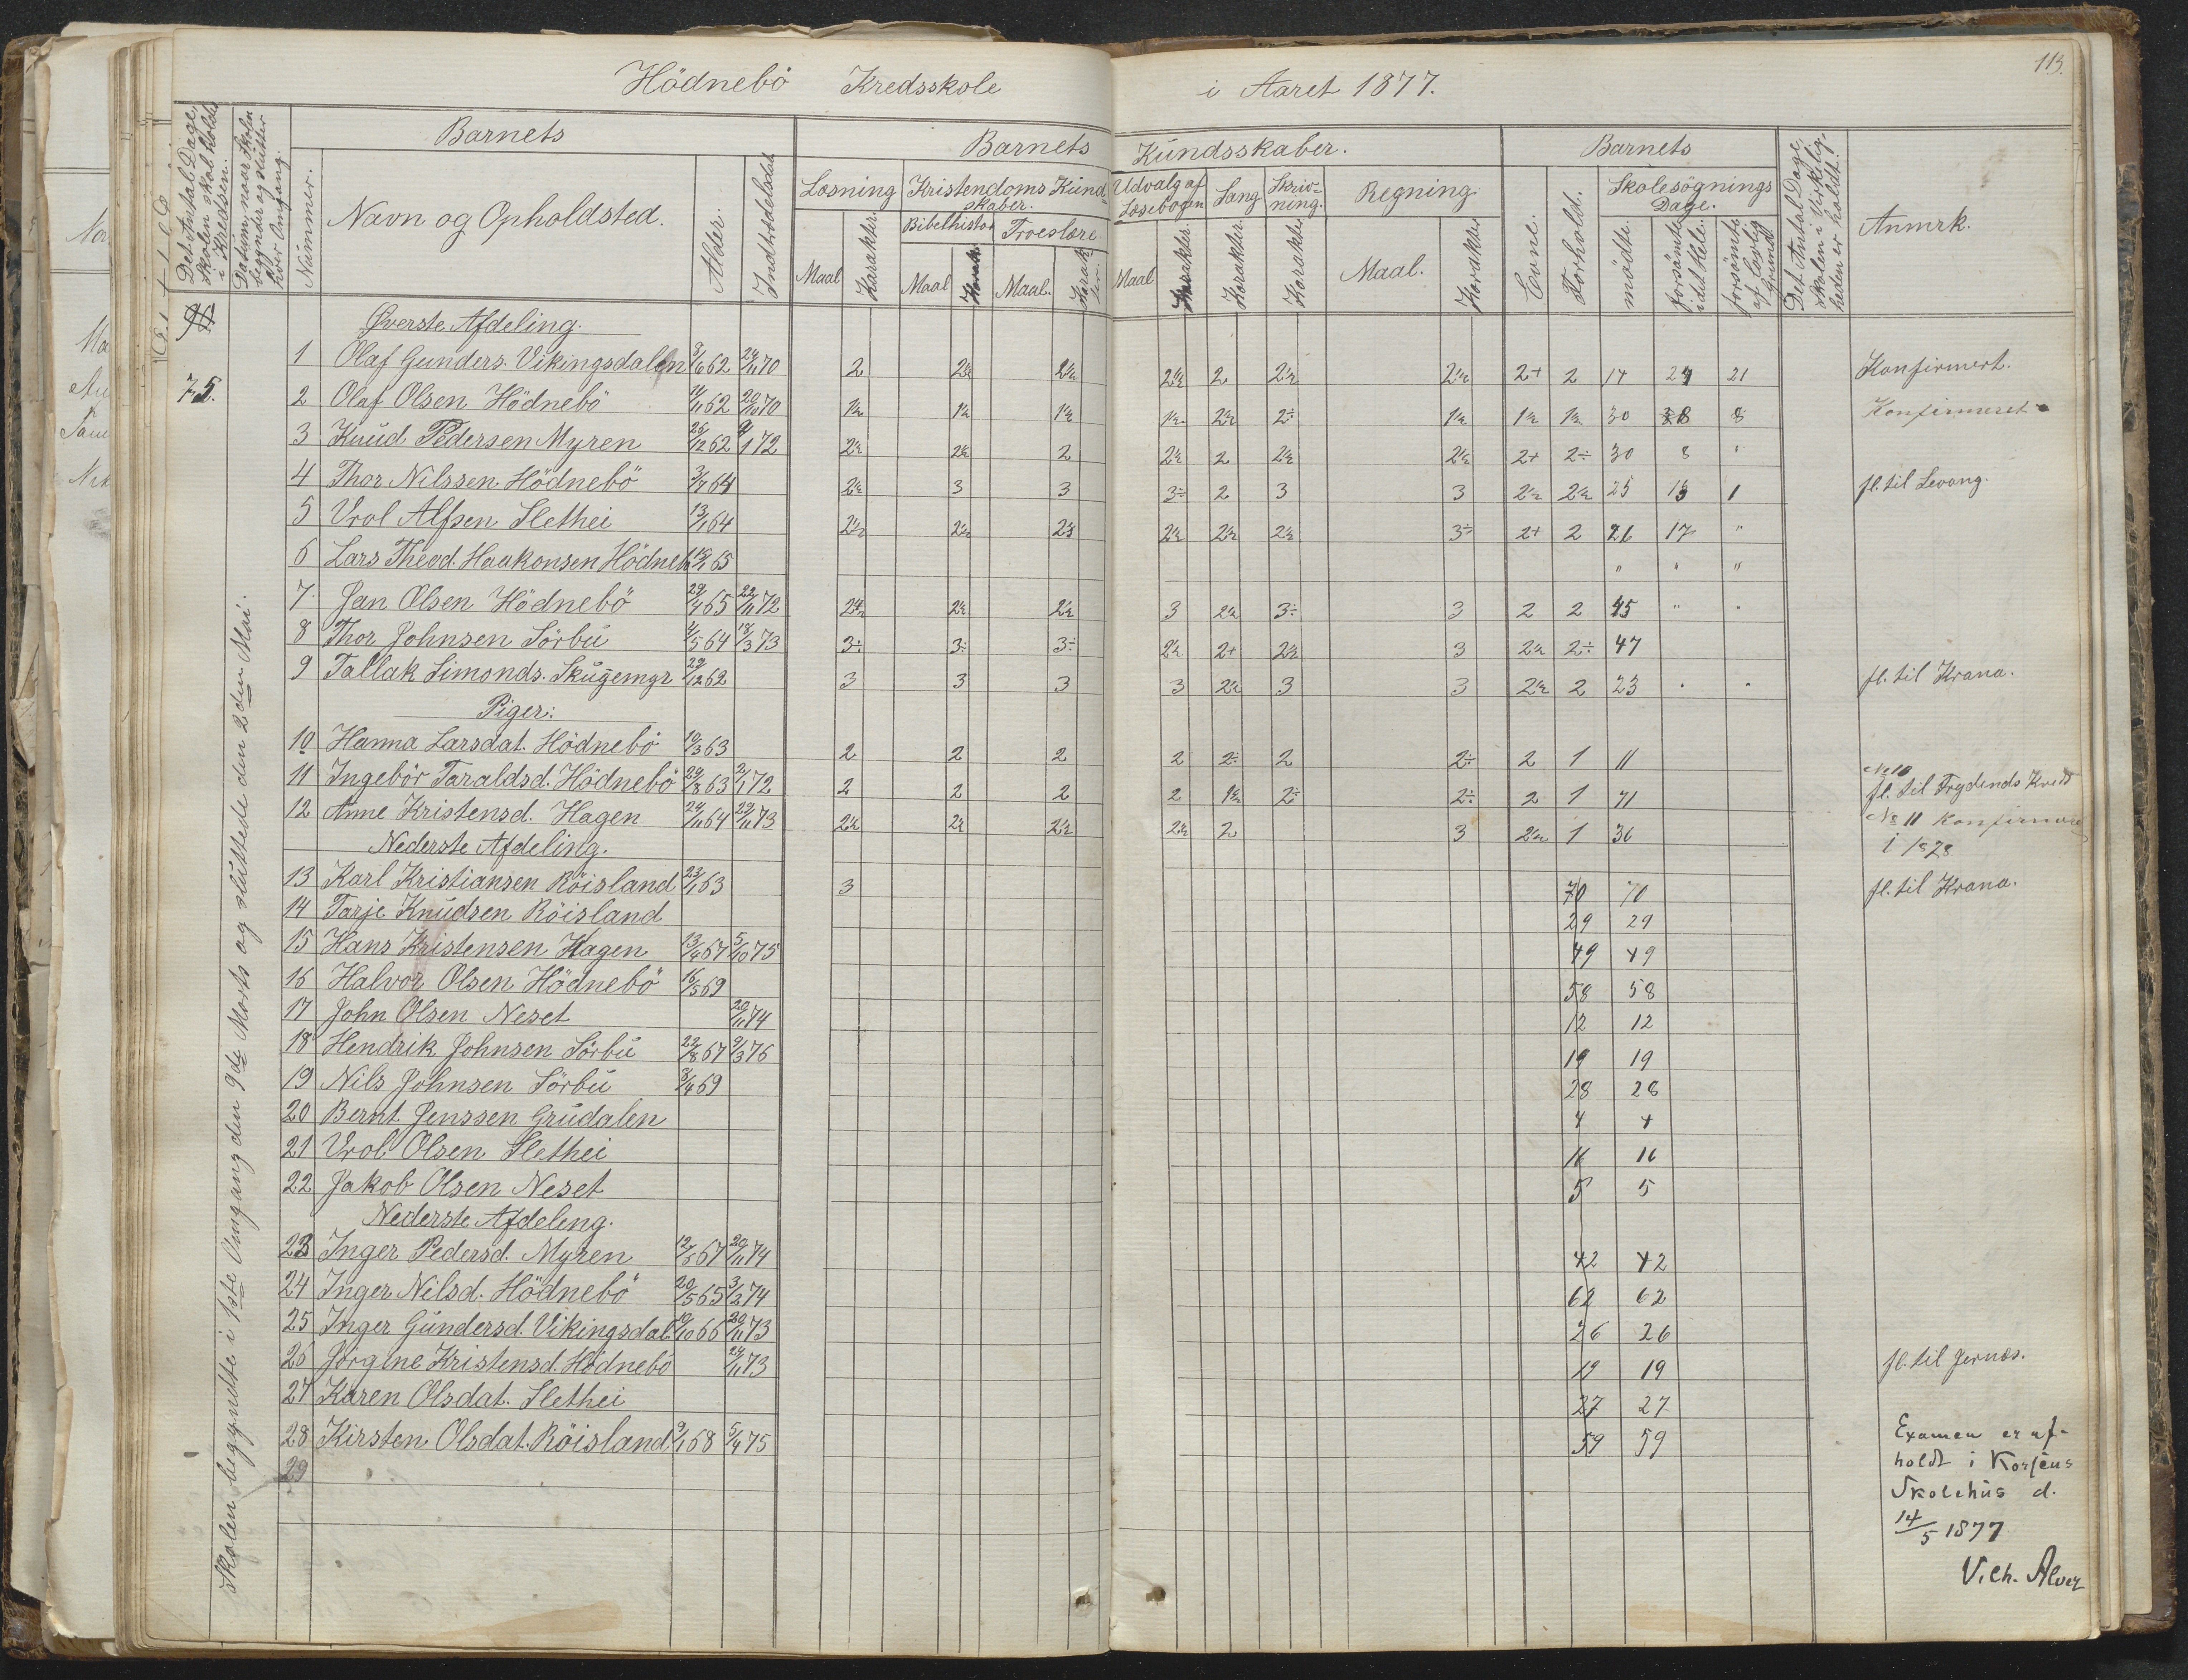 Hödnebö Kredsskole i Aaret 1877.
113.
Det Antal Dage, Skolen skal holdes i Kredsen.
Datum, naar Skolen begynder og slutter hver Omgang.
Barnets
Nummer.
Navn og Opholdsted.
Alder.
Indtrædelsesdat
Barnets Kundsskaber.
Læsning
Maal
Karakter.
Kristendoms Kundskaber.
Bibelhistor
Maal
Karak
Troeslære
Maal.
Karakter.
Udvalg af Læsebogen
Maal
Karakter.
Sang
Karakter.
Skrivning.
Karakter.
Regning.
Maal.
Karakter
Barnets
Evne.
Forhold.
Skolesögnings Dage.
mödte.
forsömte i det Hele.
forsömte af lovlig Grund
Det Antal Dage, Skolen i Virkeligheden er holdt.
Anmrk.
75.
Skolen begyndte i 1ste Omgang den 9de Marts og sluttede den 2den Mai.
Øverste Afdeling.
1 Olaf Gunders. Vikingsdalen 3/6 62 24/11 70 2 2½ 2½ 2½ 2 2½ 2½ 2+ 2 14 24 21 Konfirmert.
2 Olaf Olsen Hödnebö 11/11 62 20/10 70 1½ 1½ 1½ 1½ 2½ 2÷ 1½ 1½ 1½ 30 8 8 Konfirmeret
3 Knud Pedersen Myren 26/12 62 9/1 72 2½ 2½ 2 2½ 2 2½ 2½ 2+ 2÷ 30 8 "
4 Thor Nilssen Hödnebö 3/7 64 2½ 3 3 3÷ 2 3 3 2½ 2½ 25 13 1 fl. til Levang.
5 Vrol Alfsen Slethei 13/1 64 2½ 2½ 2½ 2½ 2½ 2½ 3÷ 2+ 2 26 17 "
6 Lars Theod. Haakonsen Hödneb 65 " " "
7 Jan Olsen Hödnebö 29/4 65 22/11 72 2½ 2½ 2½ 3 2½ 3÷ 3 2 2 45 " "
8 Thor Johnsen Sörbu 4/5 64 18/3 73 3÷ 3÷ 3÷ 2½ 2+ 2½ 3 2½ 2÷ 47
9 Tallak Simonds. Skugemyr 29/12 62 3 3 3 3 2½ 3 3 2½ 2 23 " " fl. til Krana.
Piger:
10 Hanna Larsdat. Hödnebö 10/3 63 2 2 2 2 2÷ 2 2÷ 2 1 11
11 Ingebör Taraldsd. Hödnebö 29/8 63 2/1 72 2 2 2 2 1½ 2÷ 2÷ 2 1 71
No 10 fl. til Frydends Kreds
12 Anne Kristensd. Hagen 24/11 64 29/11 73 2½ 2½ 2½ 2½ 2 3 2½ 1 36
No 11 Konfirmere
i 1828
Nederste Afdeling.
13 Karl Kristiansen Röisland 23/1 63 3 70 70 fl. til Krana.
14 Tarje Knudsen Röisland 29 29
15 Hans Kristensen Hagen 13/4 67 5/10 75 49 49
16 Halvor Olsen Hödnebö 16/5 69 58 58
17 John Olsen Neset 20/11 74 12 12
18 Hendrik Johnsen Sörbu 22/8 67 9/3 76 19 19
19 Nils Johnsen Sörbu 8/4 69 28 28
20 Bernt Jenssen Grudalen 4 4
21 Vrol Olsen Slethei 16 16
22 Jakob Olsen Neset 5 5
Nederste Afdeling.
23 Inger Pedersd. Myren 12/5 67 20/11 74 42 42
24 Inger Nilsd. Hödnebö 20/5 65 3/2 74 62 62
25 Inger Gundersd. Vikingsdal. 10/10 66 20/11 73 26 26
26 Jörgine Kristensd. Hödnebö 24/11 73 19 19 fl. til Jernæs.
27 Karen Olsdat. Slethei 27 27
28 Kirsten Olsdat. Röisland 9/1 68 5/4 75 59 59
29
Examen er af-
holdt i
Skolehus d.
14/5 1877
V. Ch. Alver